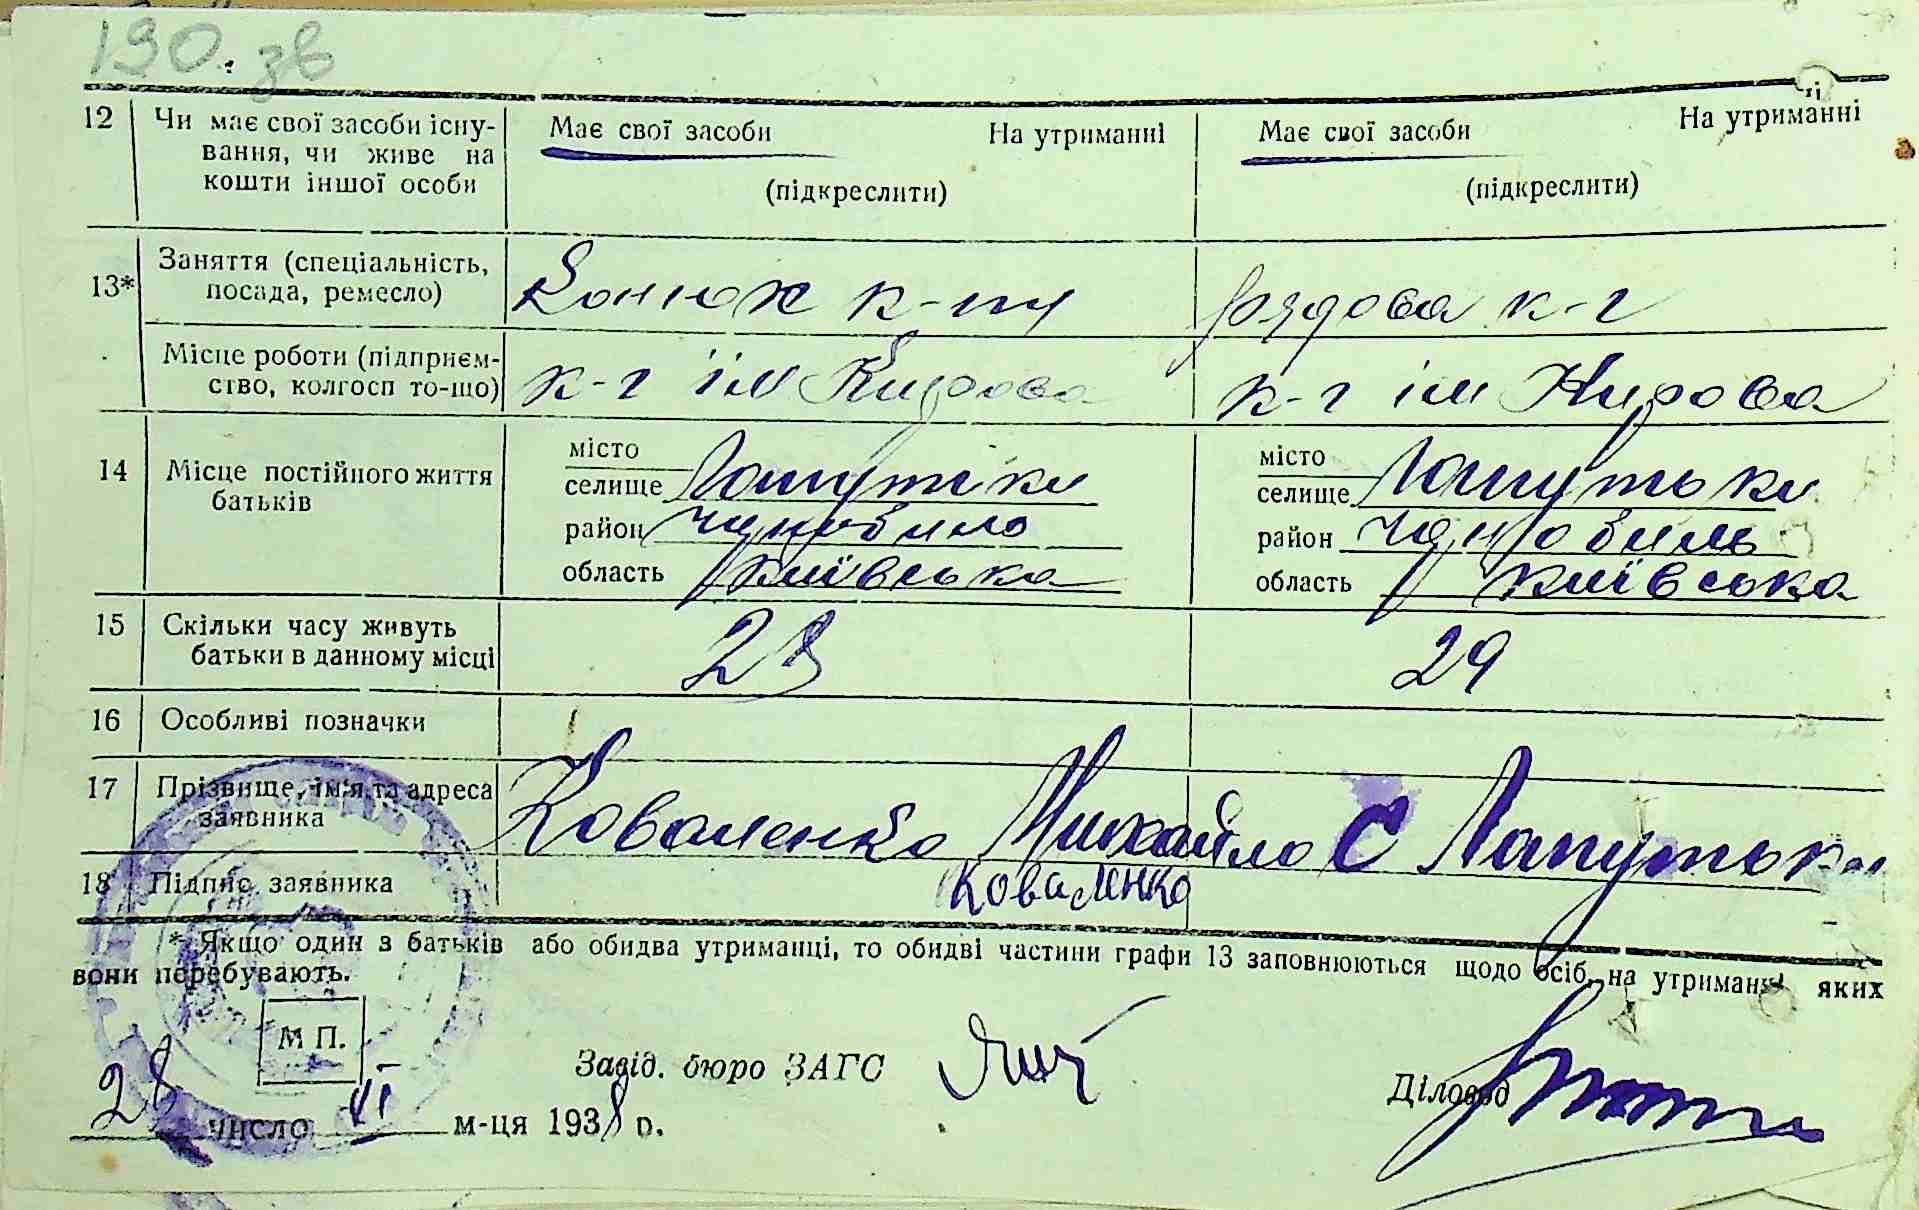 190. зв
12 Чи має свої засоби існу- Має свої засоби На утриманні Має свої засоби На утриманні
вання, чи живе на
кошти іншої особи (підкреслити) (підкреслити)
13* Заняття (спеціальність,
посада, ремесло) Конюх к-пу рядова к-г
Місце роботи (підприєм-
ство, колгосп то-що) к-г ім Кирова к-г ім Кирова
14 Місце постійного життя місто місто
батьків селище Лапутіки селище Лапутьки
район Чорнобиль район Чорнобиль
область Київська область Київська
15 Скільки часу живуть
батьки в данному місці 28 29
16 Особливі позначки
17 Прізвище, ім'я та адреса
заявника Коваленко Михайло С Лапутьки
18 Підпис заявника Коваленко
* Якщо один з батьків або обидва утриманці, то обидві частини графи 13 заповнюються щодо осіб, на утриманні яких
вони перебувають.
М П.
Завід. бюро ЗАГС Діловод
28 число VI м-ця 1938 р.